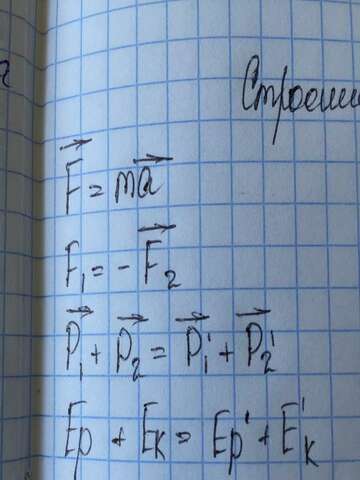 Строени
F⃗ = ma⃗
F₁ = - F⃗₂
P⃗₁ + P⃗₂ = P⃗₁' + P⃗₂'
Ep + Eк = Ep' + E'к